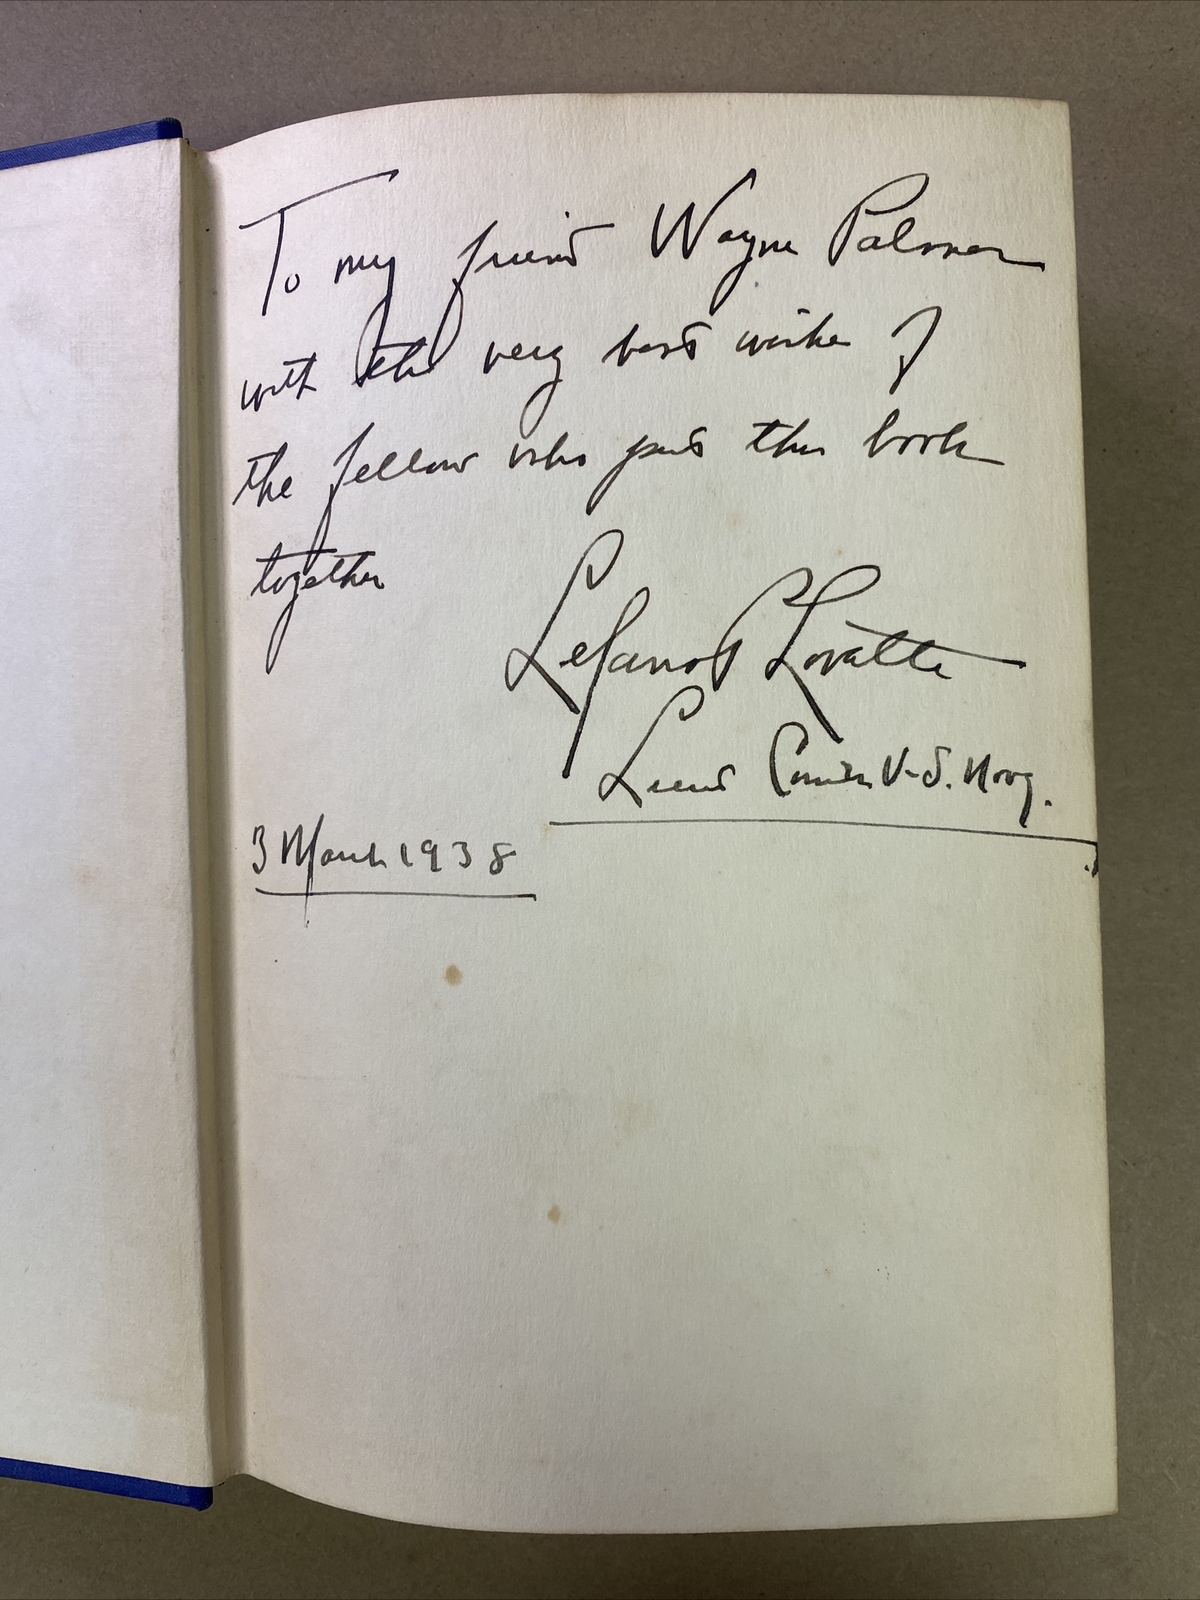 To my friend Wayne Palmer
with the very best wishes of
the fellow who puts this book
together
Leland P Lovette
Lieut Comdr U.S. Navy.
3 March 1938